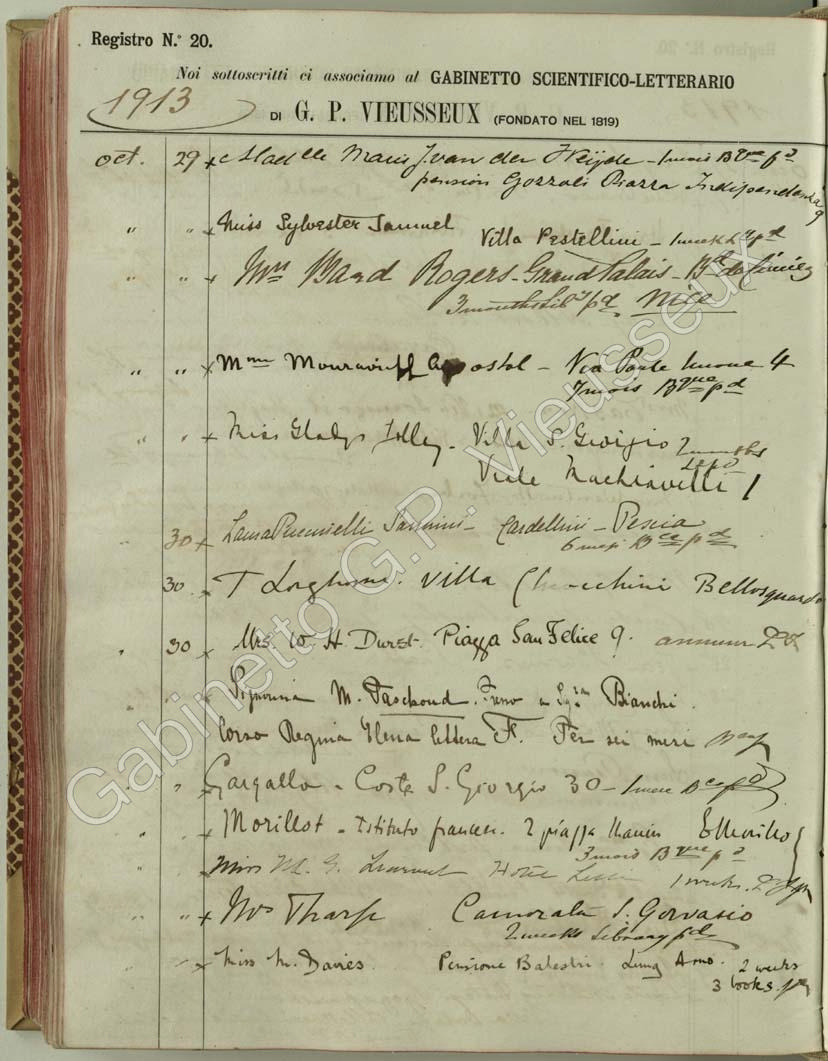 Registro N.° 20.
Noi sottoscritti ci associamo al GABINETTO SCIENTIFICO-LETTERARIO
1913
DI G. P. VIEUSSEUX (FONDATO NEL 1819)
oct. 29 x Madelle Marie J. van der Heijde - 1 mois Bque pd
pension Gozzoli Piazza Indipendenza 9
" " x Miss Sylvester Samuel Villa Pestellini - 1 week pd
" " x Mrs Ward Rogers - Grand Palais - Bd de Cimiez
3 months Liby pd Nice
" " x Mme Mouravieff Apostol - Via Ponte 4
mois Bque pd
" " x Miss Gladys - Villa S. Giorgio 2 months
Viale Machiavelli 1
30 x Laura Puccinelli Sannini - Cardellini - Pescia
6 mesi Bca pd
30 x T Villa Bellosguardo
" 30 x Mrs. W H Durst. Piazza San Felice 9.
" " Signorina M. Paschoud. Bianchi.
Corso Regina Elena lettera F. Per sei mesi
" " Gargallo - Costa S. Giorgio 30 - 1 mese Bca pd
" " x Morillot - Istituto francese. 2 piazza Manin EMorillot
3 mois Bque pd
Miss M. G. Hotel
" " x Mrs Tharp Camerata S. Gervasio
2 weeks Library pd
" x Miss M. Davies. Pensione Balestri. Lung Arno. 2 weeks
3 books. pd
Gabinetto G.P. Vieusseux